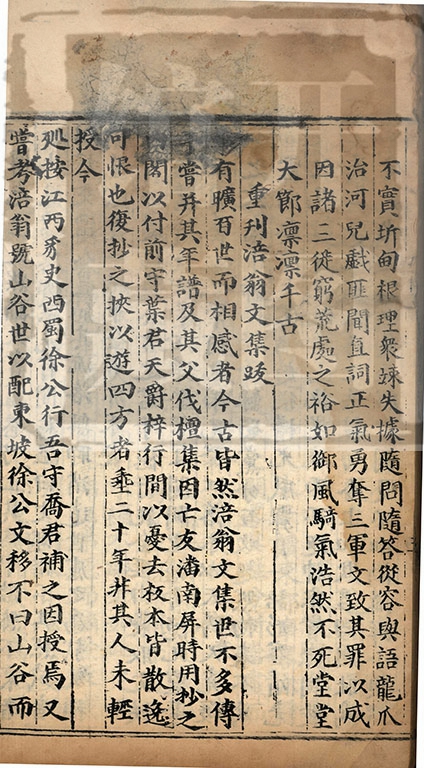 不實圻甸根理衆竦失據隨問隨答從容與語龍爪
治河兒戲匪聞直詞正氣勇奪三軍文致其罪以成
因諸三徙窮荒處之裕如御風騎氣浩然不死堂堂
大節凛凛千古
重刋涪翁文集跋
有曠百世而相感者今古皆然涪翁文集世不多傳
嘗并其年譜及其父伐檀集因亡友潘南屏時用抄之
閣以付前守葉君天爵梓行間以憂去板本皆散逸
可恨也復抄之挾以遊四方者垂二十年非其人未輕
授今
廵按江西秀史西蜀徐公行吾守喬君補之因授焉又
嘗考涪翁號山谷世以配東坡徐公文移不曰山谷而